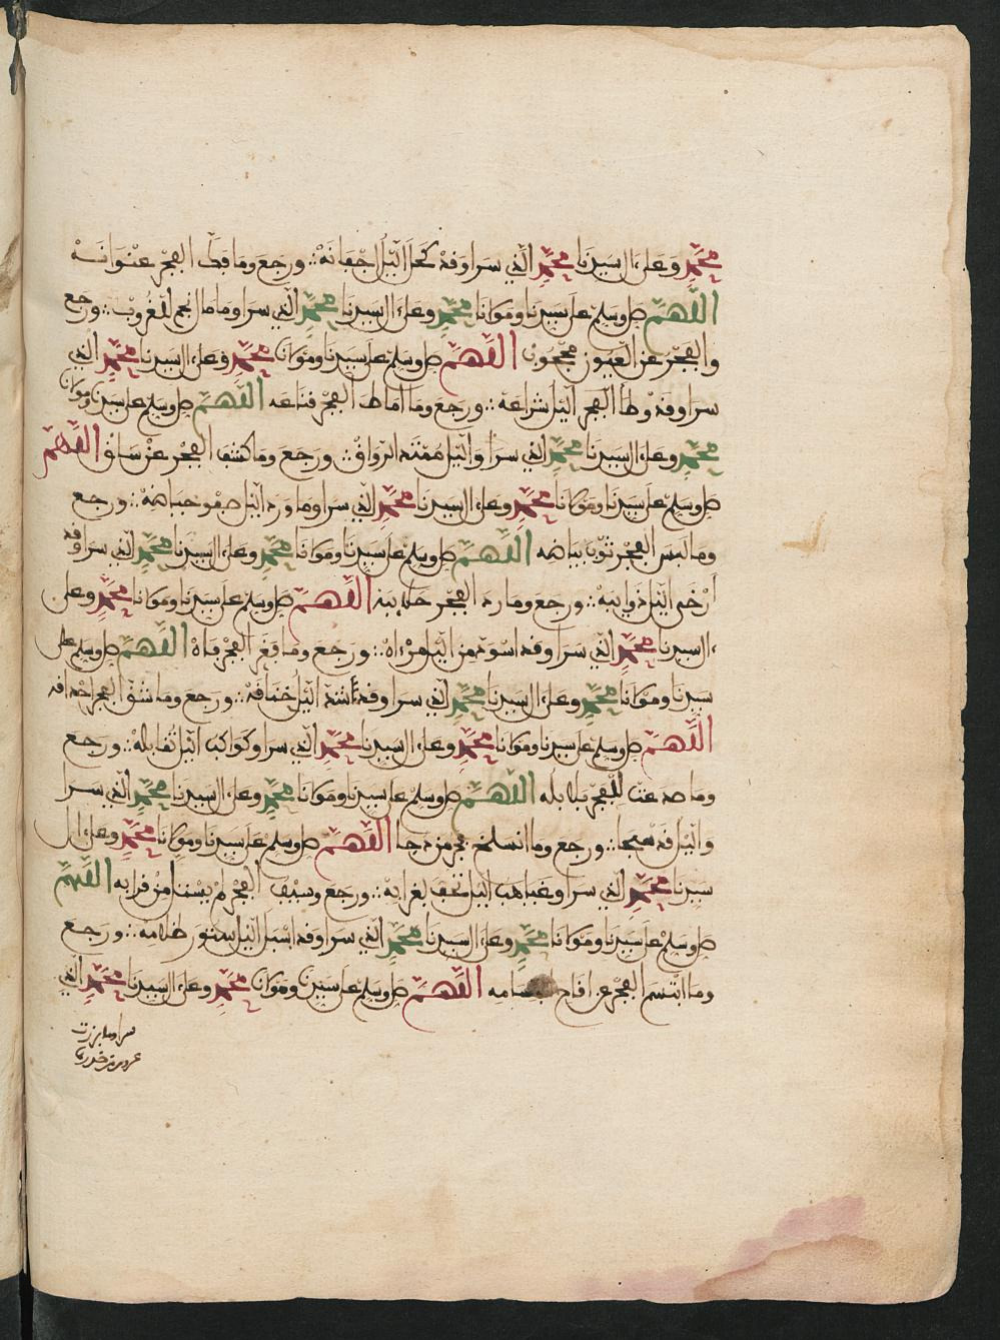 محمد وعلى ءال سيدنا محمد الذي سرا وقد كحل اليل اجفانه ورجع وما قط الفجر عنوانه
اللهم صل وسلم على سيدنا ومولانا محمد وعلى ءال سيدنا محمد الذي سرا وما مال النجم للغروب ورجع
والفجر عن العيون محجوب اللهم صل وسلم على سيدنا ومولانا محمد وعلى ءال سيدنا محمد الذي
سرا وقد وطا اليل شراعه ورجع وما اماط الفجر قناعه اللهم صل وسلم على سيدنا ومولانا
محمد وعلى ءال سيدنا محمد الذي سرا واليل ممتد الرواق ورجع وما كشف الفجر عن ساق اللهم
صل وسلم على سيدنا ومولانا محمد وعلى ءال سيدنا محمد الذي سرا وما ورد اليل صفو حياضه ورجع
وما لبس الفجر ثوب بياضه اللهم صل وسلم على سيدنا ومولانا محمد وعلى ءال سيدنا محمد الذي سرا وقد
ارخى اليل ذوايبه ورجع وما رد الفجر جلابيبه اللهم صل وسلم على سيدنا ومولانا محمد وعلى
ءال سيدنا محمد الذي سرا وقد اسود من اليل مرءاه ورجع وما فغر الفجر فاه اللهم صل وسلم على
سيدنا ومولانا محمد وعلى ءال سيدنا محمد الذي سرا وقد اشتد اليل ورجع وما شق الفجر احداقه
اللهم صل وسلم على سيدنا ومولانا محمد وعلى ءال سيدنا محمد الذي سرا وكواكب اليل تقابله ورجع
وما صدعت للفجر بلابله اللهم صل وسلم على سيدنا ومولانا محمد وعلى ءال سيدنا محمد الذي سرا
واليل قد سجا ورجع وما انسلخ فجر من دجا اللهم صل وسلم على سيدنا ومولانا محمد وعلى ءال
سيدنا محمد الذي سرا وغياهب اليل تحف بغرابه ورجع وسيف الفجر لم يستل من قرابه اللهم
صل وسلم على سيدنا ومولانا محمد وعلى ءال سيدنا محمد الذي سرا وقد اسبل اليل ستور ظلامه ورجع
وما ابتسم الفجر عن اقاح اللهم صل وسلم على سيدنا ومولانا محمد وعلى ءال سيدنا محمد الذي
سرا وما برزت